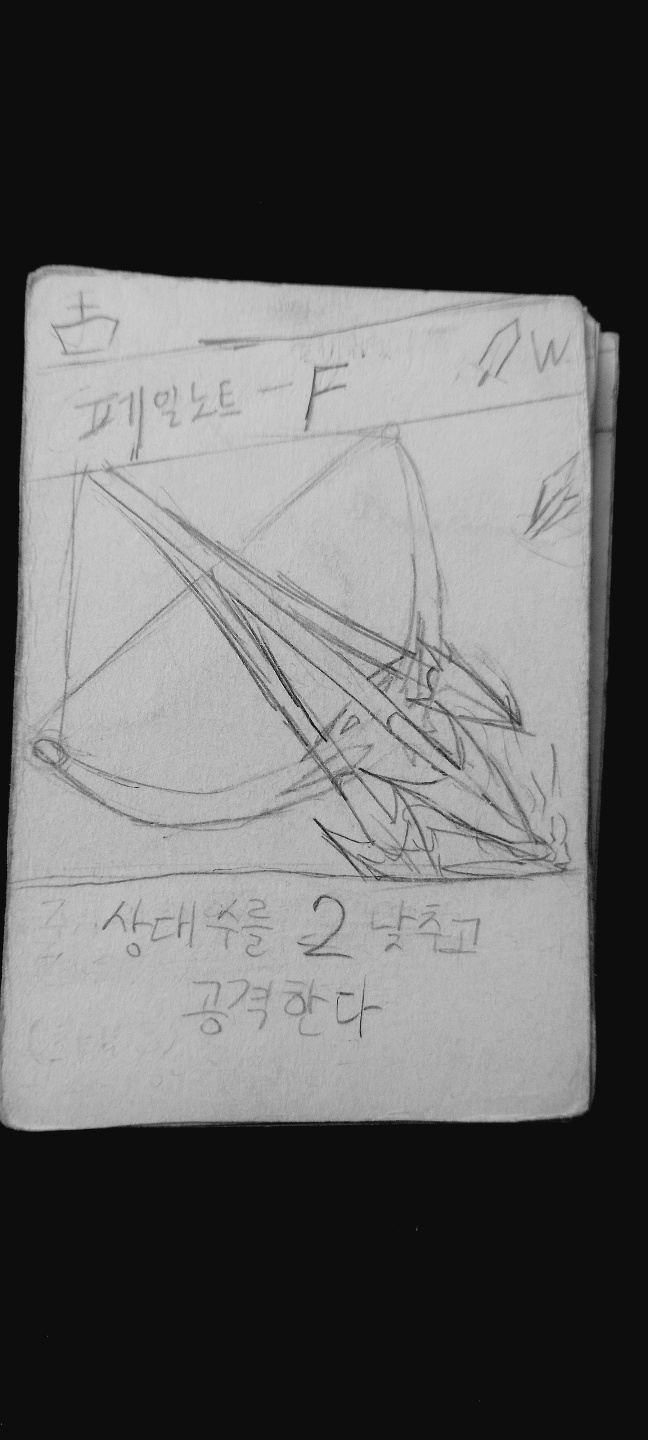 W
페일노트 - F
상대 수를 2 낮추고
공격한다